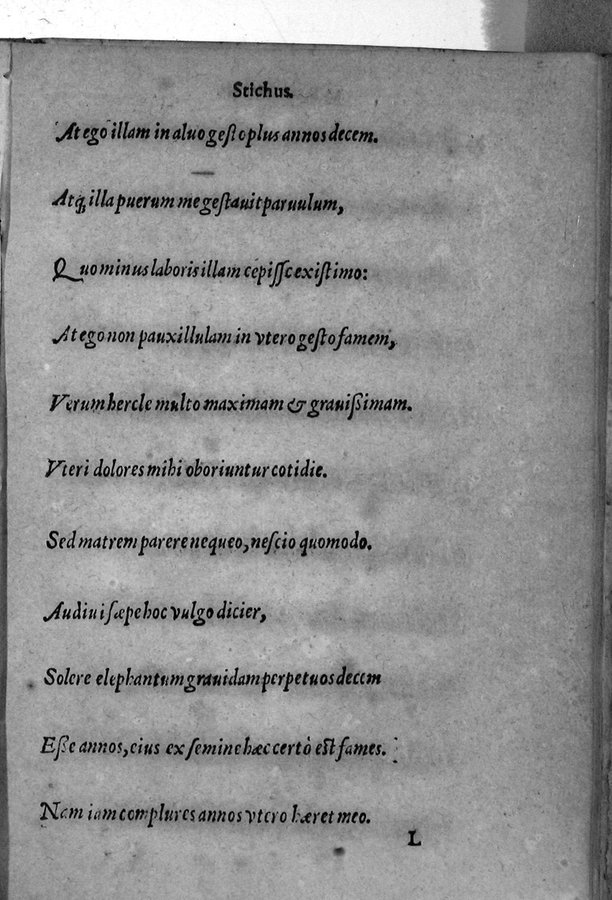 Stichus.
At ego illam in aluo gesto plus annos decem.
Atq; illa puerum me gestauit paruulum,
Quo minus laboris illam cepisse existimo:
At ego non pauxillulam in vtero gesto famem,
Verum hercle multo maximam & grauissimam.
Vteri dolores mihi oboriuntur cotidie.
Sed matrem parere nequeo, nescio quomodo.
Audiui sæpe hoc vulgo dicier,
Solere elephantum grauidam perpetuos decem
Esse annos, eius ex semine hæc certò est fames.
Nam iam complures annos vtero hæret meo.
L